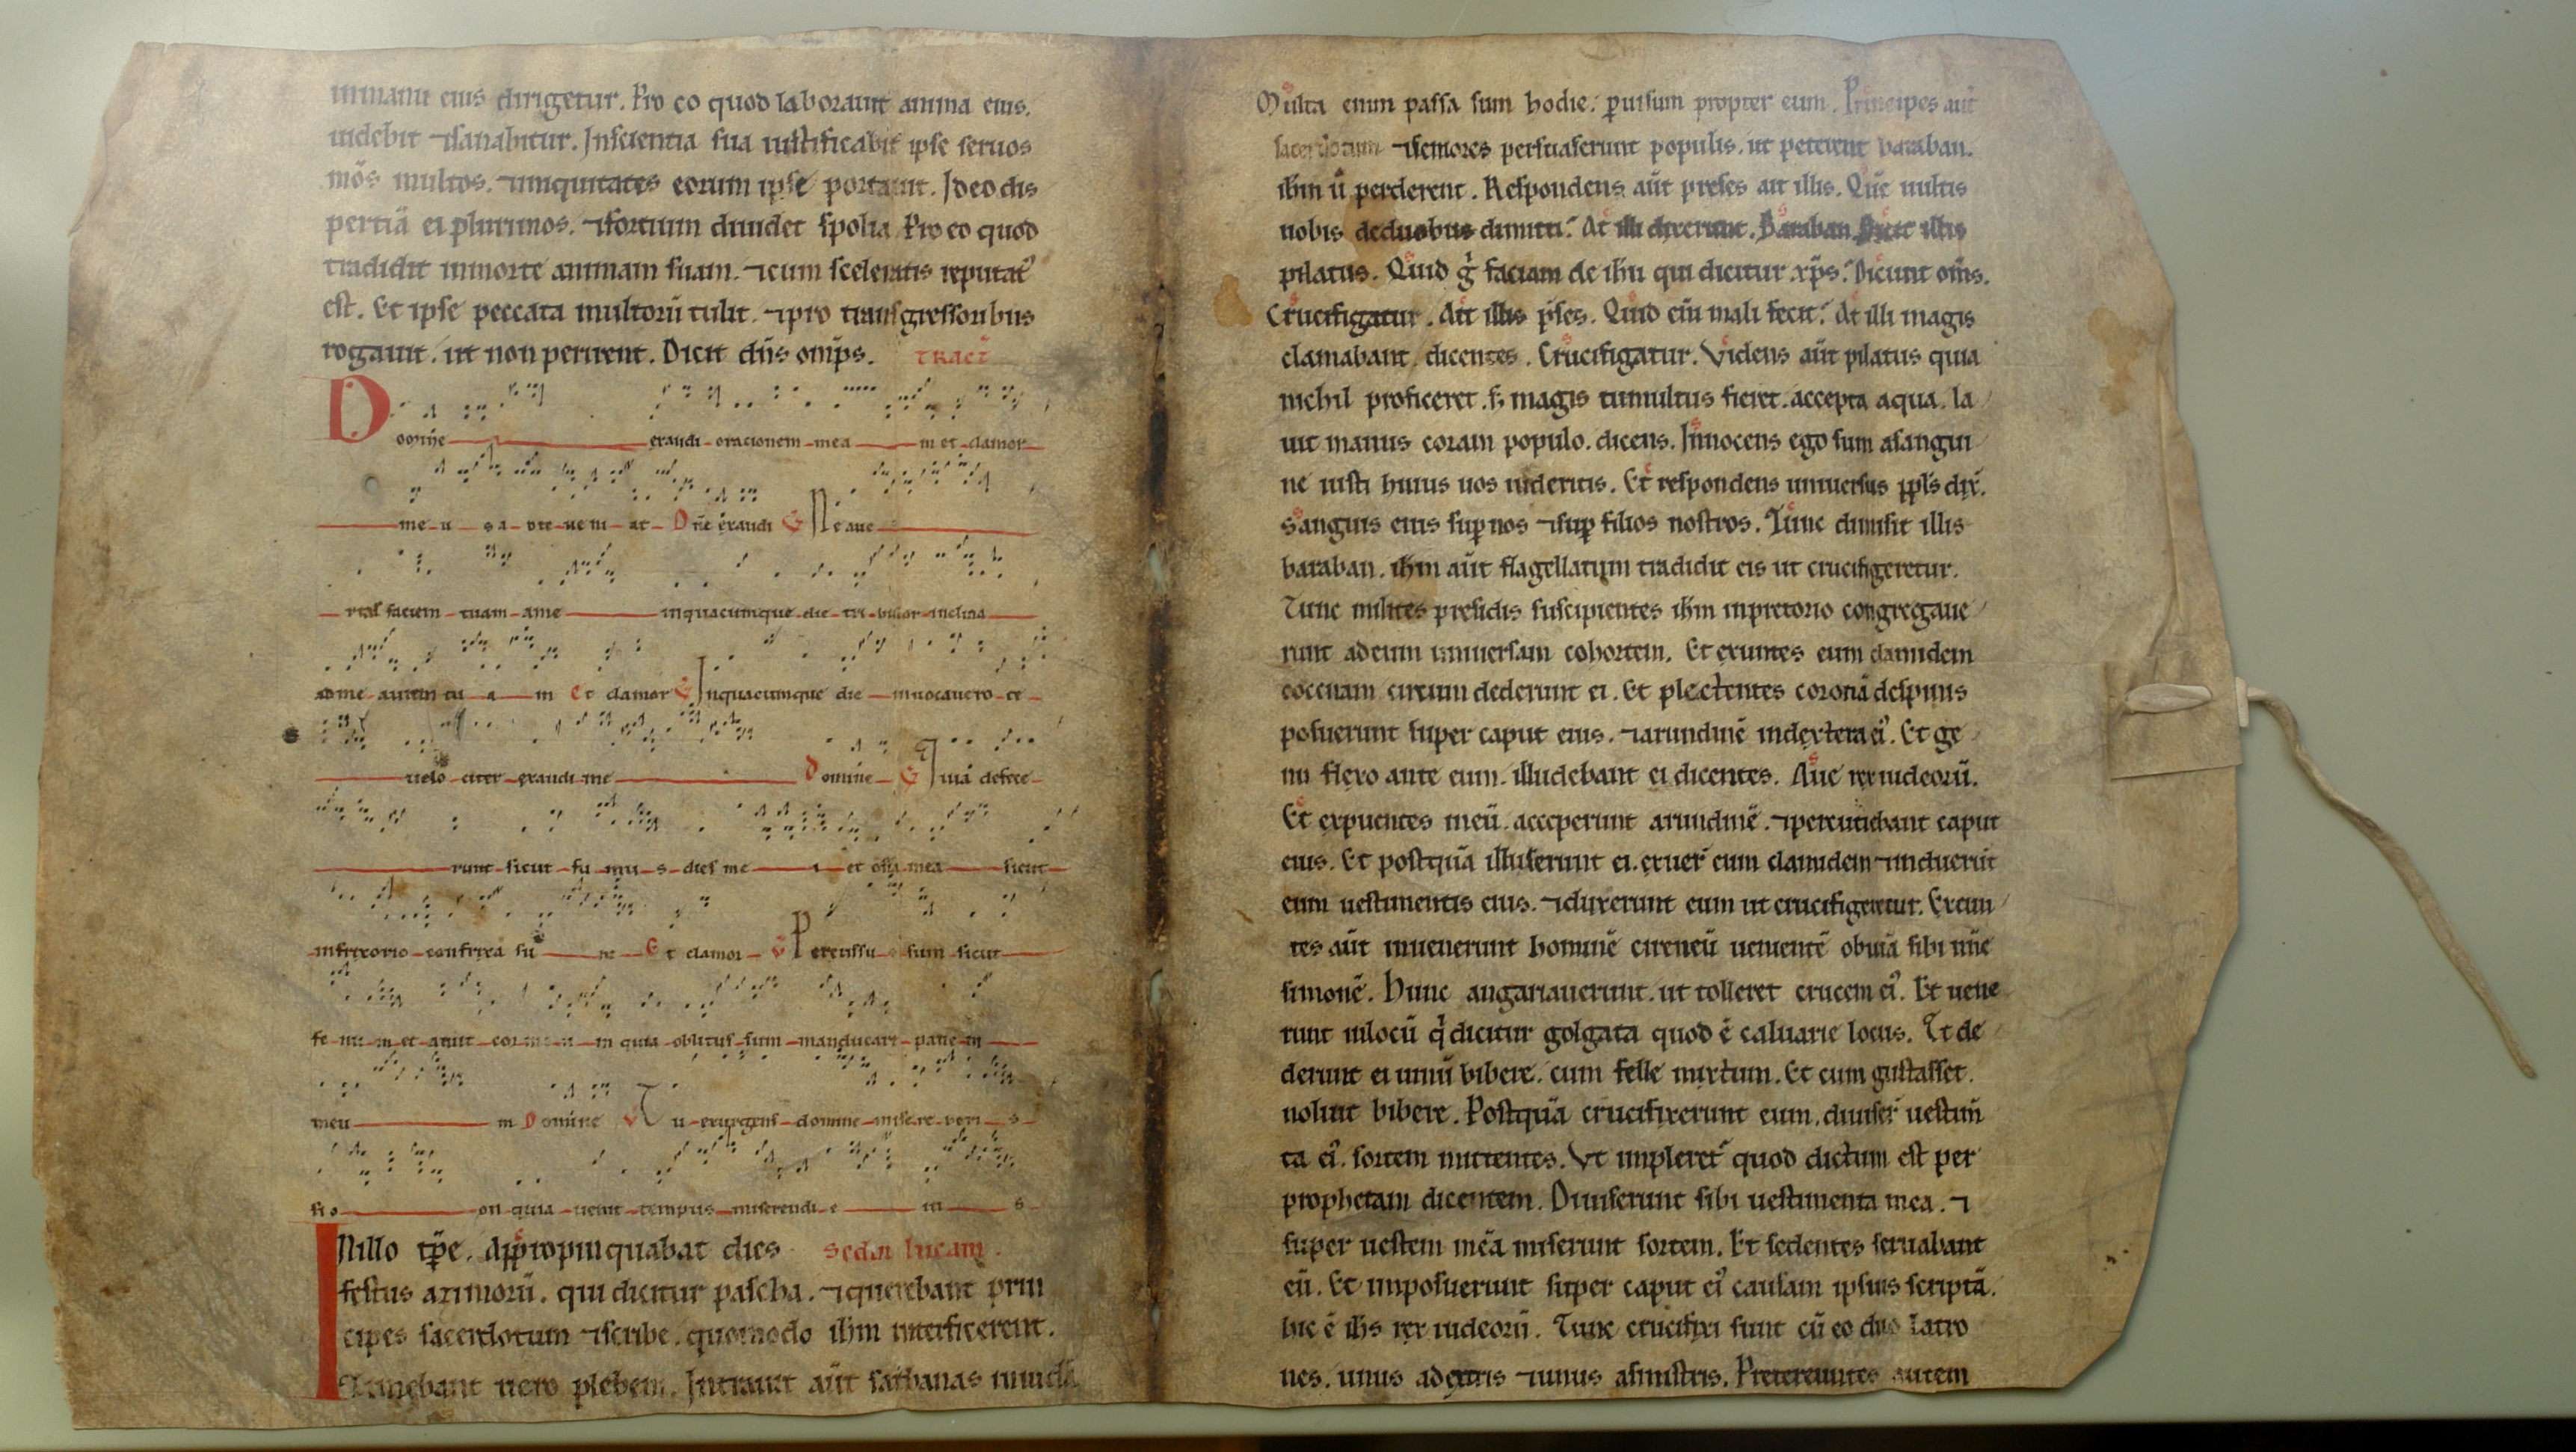 inmanu eius dirigetur. Pro eo quod laborauit anima eius.
uidebit ⁊sanabitur. Inscientia sua iustificabit ipse seruos
mõs multos. ⁊iniquitates eorum ipse portauit. Ideo dis
pertiã ei plurimos. ⁊fortium diuidet spolia Pro eo quod
tradidit inmorte animam suam. ⁊cum sceleratis reputat᷒
est. Et ipse peccata multorũ tulit. ⁊pro transgressoribus
rogauit. ut non perirent. Dicit dñs omp̃s. TRACT̃
Domine exaudi oracionem mea m et clamor
me u s a dte ueni at Dñe exaudi ℣ Ne aue
rtas faciem tuam ame inquacumque die tri bulor inclina
adme aurem tu a m Et clamor ℣ Inquacumque die inuocauero te
uelo citer exaudi me Domine ℣ Quiã defece
runt sicut fu mu s dies me i et ossa mea sicut
infrixorio confrixa su nt Et clamor ℣ Percussu s sum sicut
fe nu m et aruit cor m quia oblitus sum manducare pane m
meu m Domine ℣ Tu exurgens domine misere beri s
sio on quia uenit tempus miserendi e iu s
INillo tp̃e. Appropinquabat dies secdm lucam.
festus azimorũ. qui dicitur pascha. ⁊querebant prin
cipes sacerdotum ⁊scribe. quomodo ihm interficerent.
Timebant uero plebem. Intrauit aũt sathanas iniudã
Multa enim passa sum hodie. ꝑuisum propter eum. Principes aũt
sacerdotum ⁊seniores persuaserunt populis. ut peterent baraban.
ihm ũ perderent. Respondens aũt preses ait illis. Quẽ uultis
uobis deduobus dimitti? At illi dixerunt. Baraban Dicit illis
pilatus. Quid g̊ faciam de ihu qui dicitur xp̃s? Dicunt om̃s.
Crucifigatur. Ait illis p̃ses. Quid eñi mali fecit? At illi magis
clamabant dicentes. Crucifigatur. Videns aũt pilatus quia
nichil proficeret. s; magis tumultus fieret. accepta aqua. la
uit manus coram populo. dicens. Innocens ego sum asangui
ne iusti huius uos uideritis. Et respondens uniuersus ppl̃s dix̃.
Sanguis eius suꝑ nos ⁊suꝑ filios nostros. Tunc dimisit illis
baraban. ihm aũt flagellatum tradidit eis ut crucifigeretur.
Tunc milites presidis suscipientes ihm inpretorio congregaue
runt adeum uniuersam cohortem. Et exuntes eum clamidem
coccinam circum dederunt ei. Et plectentes coronã despinis
posuerunt super caput eius. ⁊arundinẽ indextera ei᷒. Et ge
nu flexo ante eum. illudebant ei dicentes. Aue rex iudeorũ.
Et expuentes meũ. acceperunt arundinẽ. ⁊percutiebant caput
eius. Et postquã illuserunt ei. exuer̃ eum clamidem ⁊induerũt
eum uestimentis eius. ⁊duxerunt eum ut crucifigeretur. Exeun
tes aũt inuenerunt hominẽ cireneũ uenientẽ obuiã sibi nñe
simonẽ. Hunc angariauerunt. ut tolleret crucem ei᷒. Et uene
runt inlocũ q̇ dicitur golgata quod ẽ caluarie locus. Et de
derunt ei uinũ bibere. cum felle mixtum. Et cum gustasset.
noluit bibere. Postquã crucifixerunt eum. diuiser̃ uestim̃
ta ei᷒. sortem mittentes. Vt impleret̃ quod dictum est per
prophetam dicentem. Diuiserunt sibi uestimenta mea. ⁊
super uestem meã miserunt sortem. Et sedentes seruabant
eũ. Et imposuerunt super caput ei᷒ causam ipsius scriptã.
hic ẽ ihs rex iudeorũ. Tunc crucifixi sunt cũ eo duo latro
nes. unus adextris ⁊unus asinistris. Pretereuntes autem